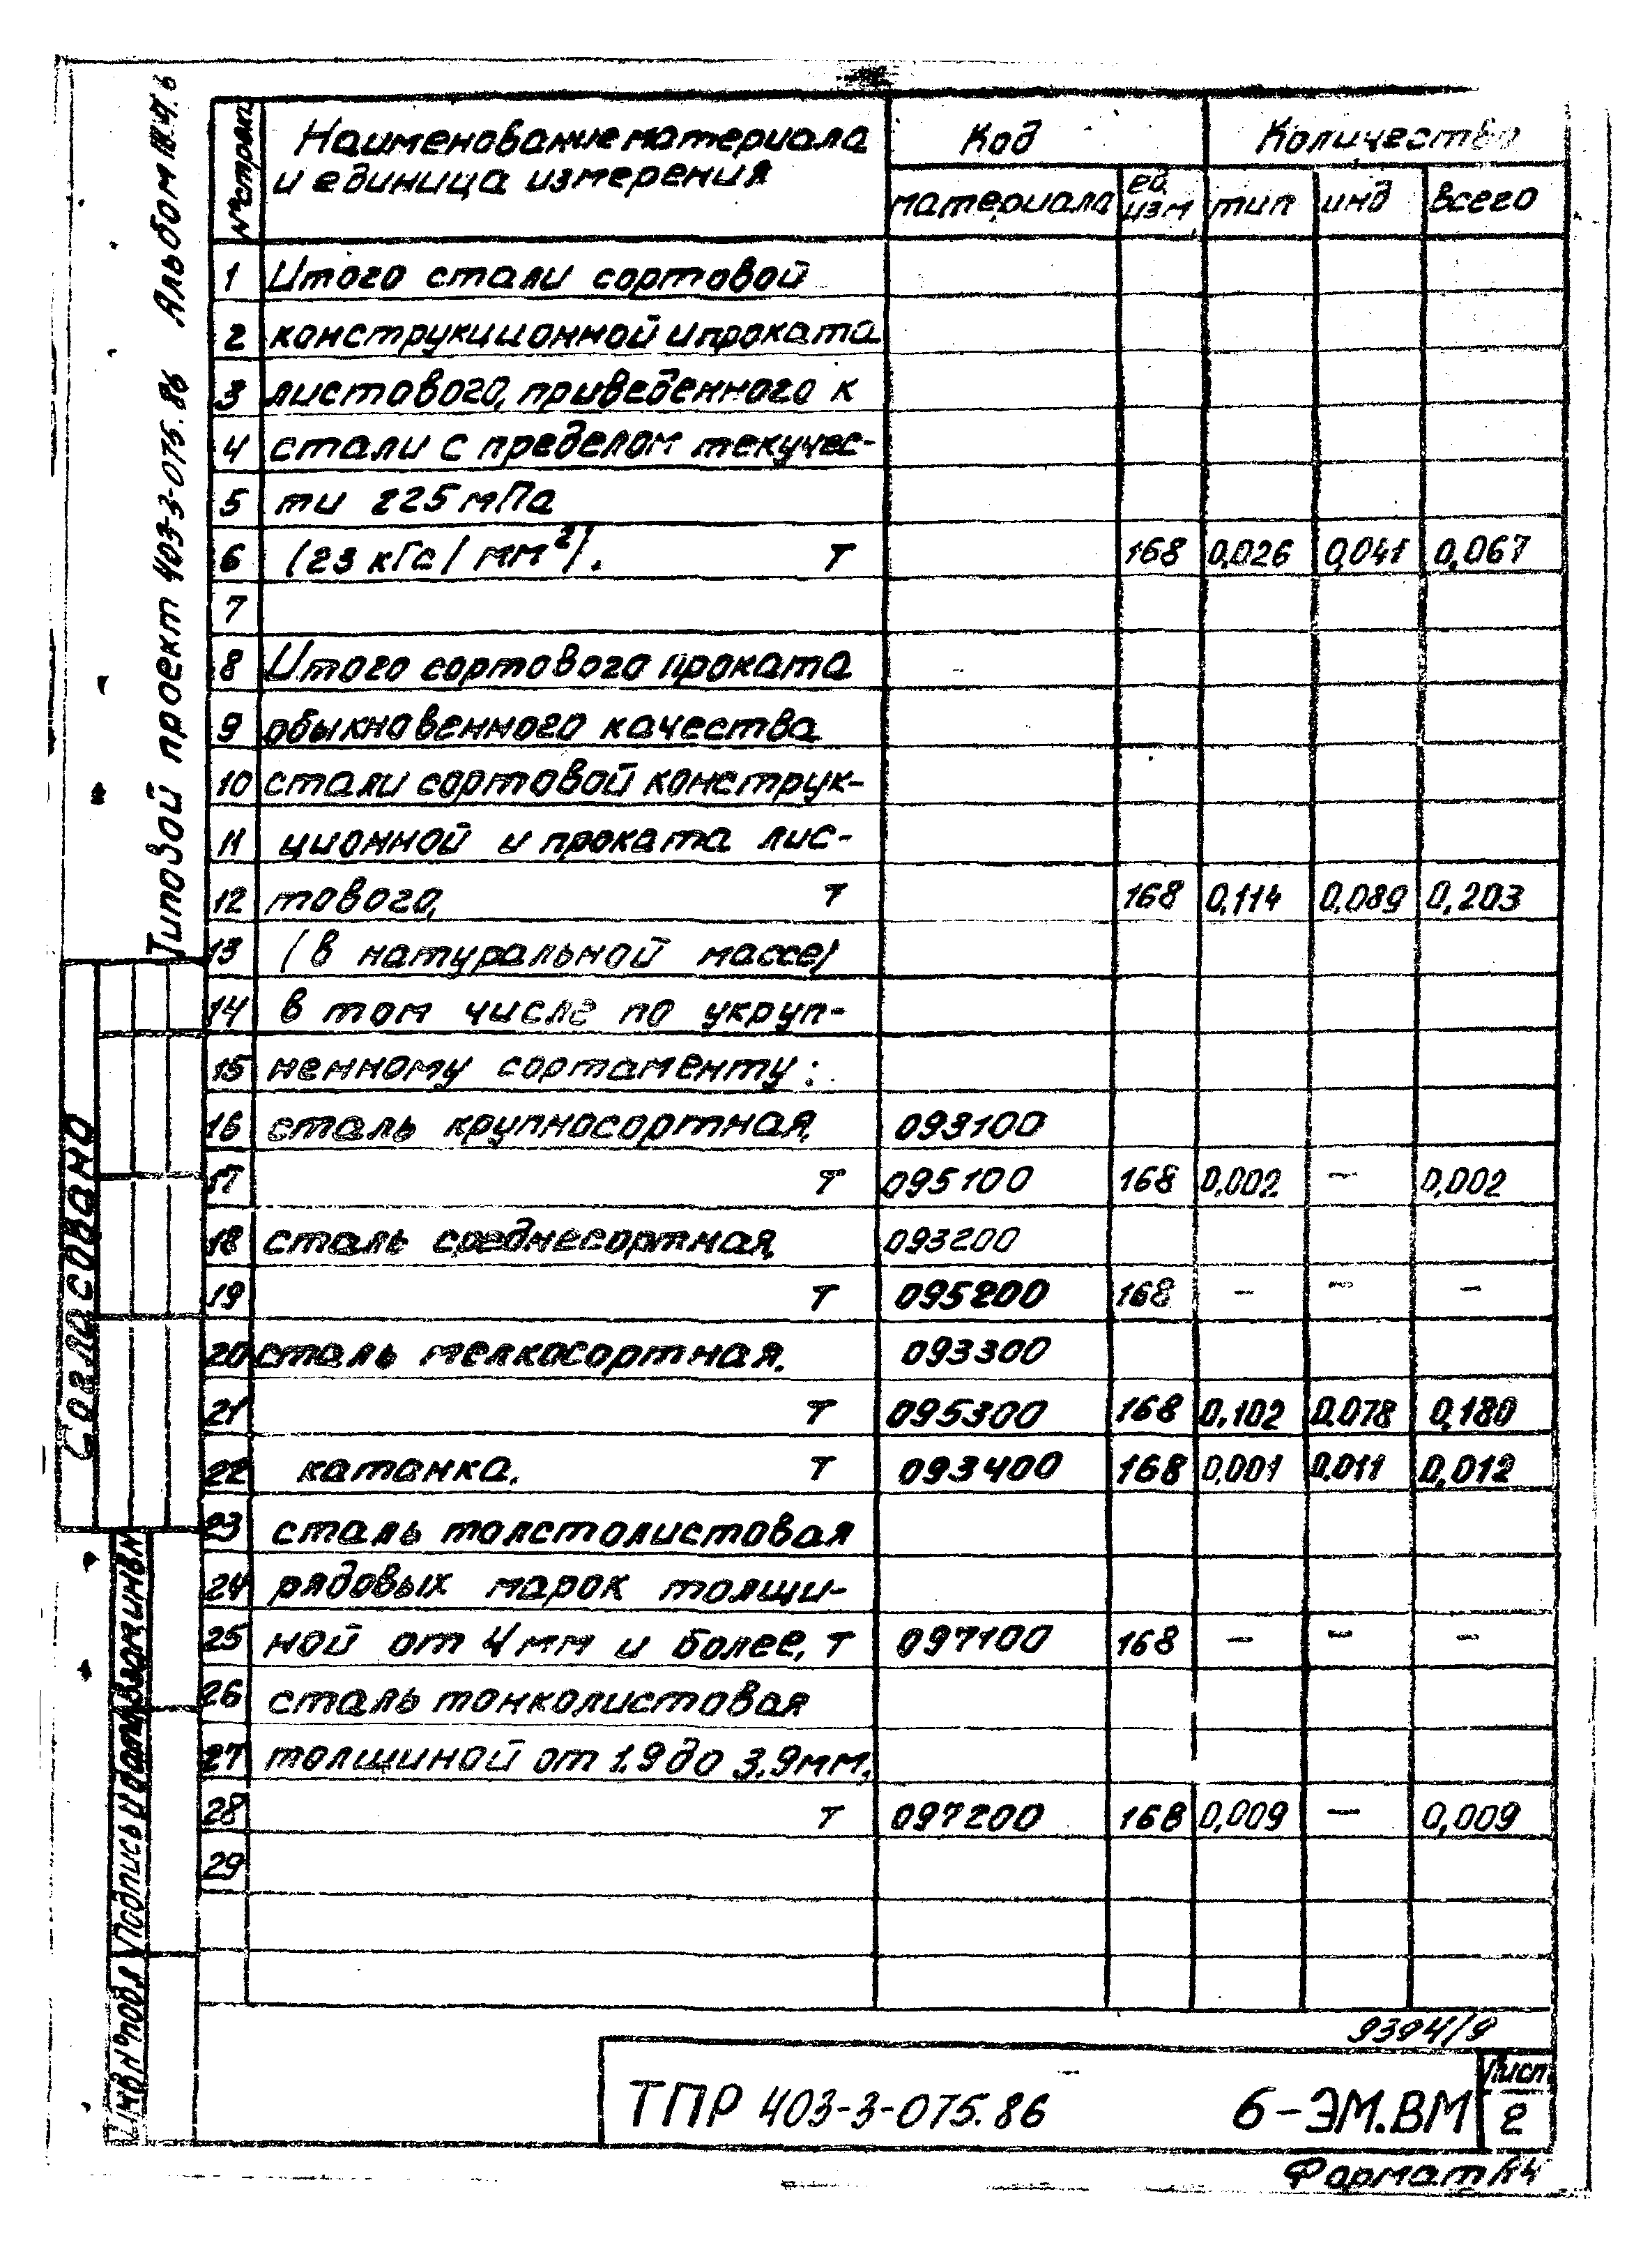 Типовой проект 403-3-075.86 Альбом III.Ч.6
№ строк Наименование материала и единица измерения Код Количество
материала ед. изм тип инд всего
1 Итого стали сортовой
2 конструкционной и проката
3 листового, приведенного к
4 стали с пределом текучес-
5 ти 225 мПа
6 (23 кГс/мм²). Т 168 0,026 0,041 0,067
7
8 Итого сортового проката
9 обыкновенного качества
10 стали сортовой конструк-
11 ционной и проката лис-
12 тового, т 168 0,114 0,089 0,203
13 (в натуральной массе)
14 в том числе по укруп-
15 ненному сортаменту:
16 сталь крупносортная, 093100
17 т 095100 168 0,002 — 0,002
18 сталь среднесортная, 093200
19 т 095200 168 — — —
20 сталь мелкосортная. 093300
21 т 095300 168 0,102 0,078 0,180
22 катанка. т 093400 168 0,001 0,011 0,012
23 сталь толстолистовая
24 рядовых марок толщи-
25 ной от 4 мм и более, т 097100 168 — — —
26 сталь тонколистовая
27 толщиной от 1.9 до 3.9 мм,
28 т 097200 168 0,009 — 0,009
29
Согласовано
Взам инв №
Подпись и дата
Инв № подл
9394/9
ТПР 403-3-075.86 6-ЭМ.ВМ
Лист
2
Формат А4